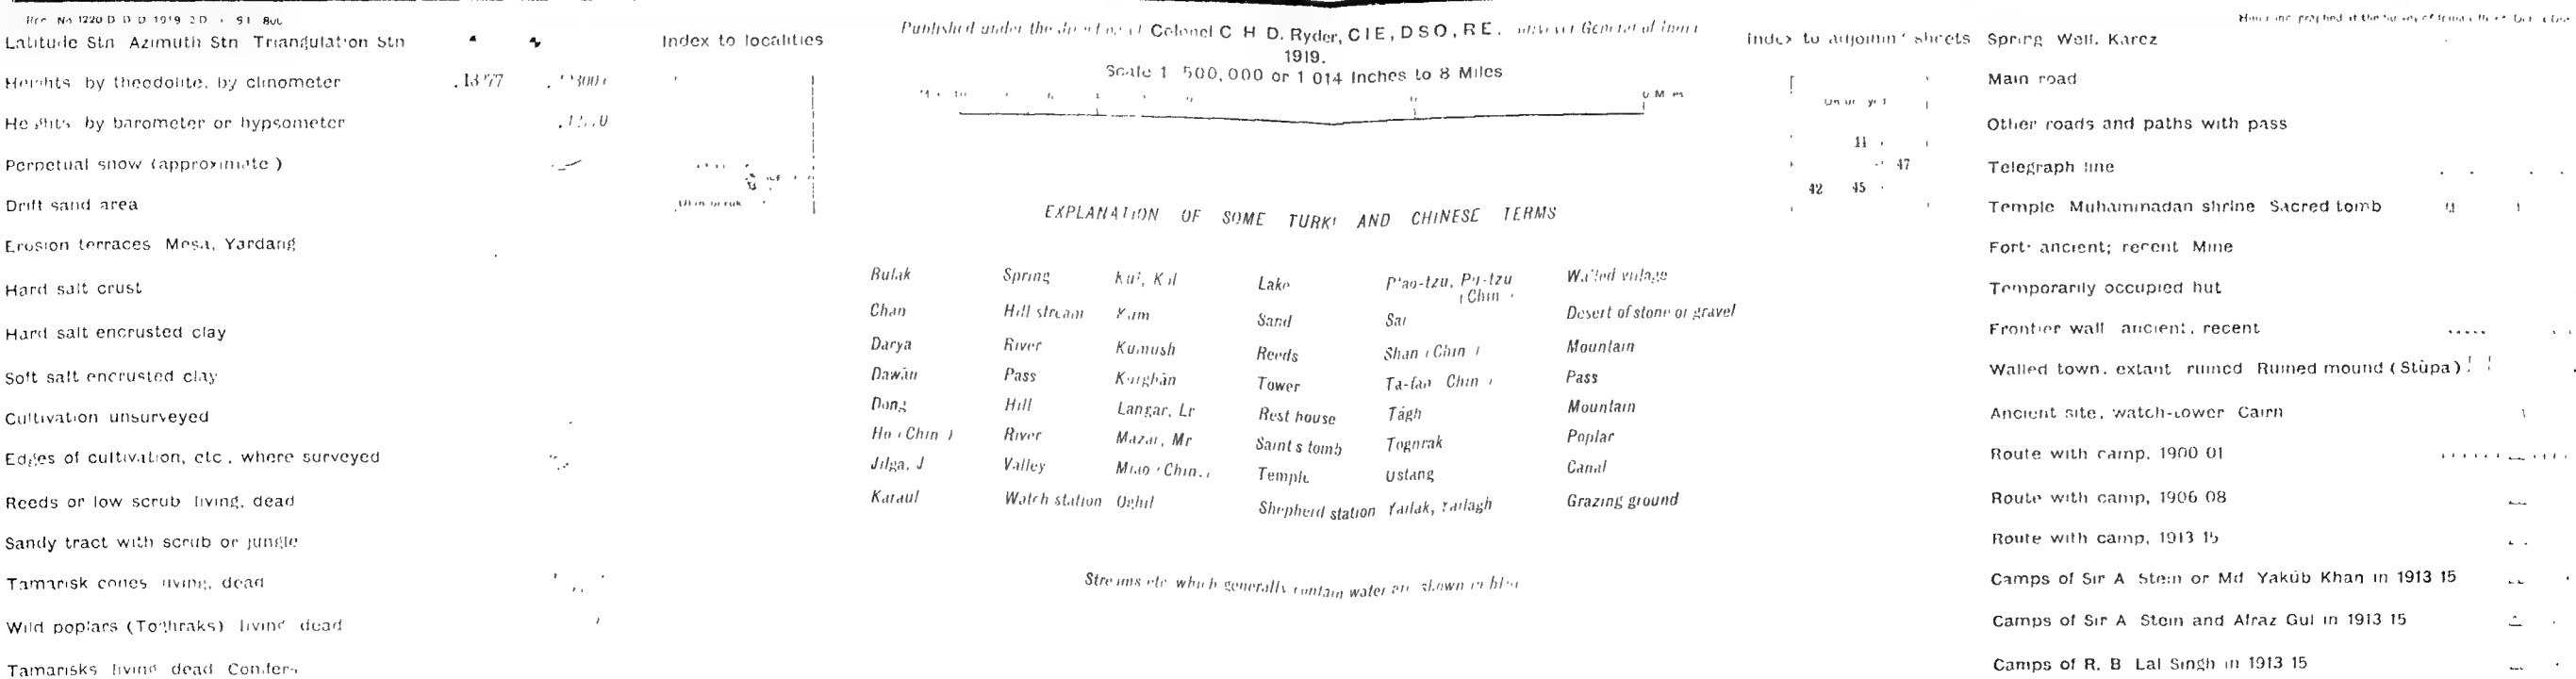 No 1220 D D D 1919
Latitude Stn Azimuth Stn Triangulation Stn
Heights by theodolite, by clinometer
Heights by barometer or hypsometer
Perpetual snow (approximate)
Drift sand area
Erosion terraces Mesa, Yardang
Hard salt crust
Hard salt encrusted clay
Soft salt encrusted clay
Cultivation unsurveyed
Edges of cultivation, etc, where surveyed
Reeds or low scrub living, dead
Sandy tract with scrub or jungle
Tamarisk cones living, dead
Wild poplars (Toghraks) living dead
Tamarisks living dead Conifers
Index to localities
Published under the direction of Colonel C H D. Ryder, CIE, DSO, RE. Surveyor General of India
1919.
Scale 1 500,000 or 1 014 Inches to 8 Miles
EXPLANATION OF SOME TURKI AND CHINESE TERMS
Bulak Spring Kul, Kol Lake P'ao-tzu, Pu-tzu (Chin) Walled village
Chan Hill stream Kum Sand Sai Desert of stone or gravel
Darya River Kumush Reeds Shan (Chin) Mountain
Dawān Pass Kurghān Tower Ta-fan Chin) Pass
Dong Hill Langar, Lr Rest house Tāgh Mountain
Ho (Chin) River Mazār, Mr Saint s tomb Toghrak Poplar
Jilga, J Valley Miao (Chin.) Temple Ustang Canal
Karaul Watch station Oghil Shepherd station Yailak, Yailagh Grazing ground
Streams etc which generally contain water are shown in blue
Index to adjoining sheets
47
42 45
Spring Well. Karez
Main road
Other roads and paths with pass
Telegraph line
Temple Muhammadan shrine Sacred tomb
Fort: ancient; recent Mine
Temporarily occupied hut
Frontier wall ancient, recent
Walled town, extant ruined Ruined mound (Stūpa)
Ancient site, watch-tower Cairn
Route with camp, 1900 01
Route with camp, 1906 08
Route with camp, 1913 15
Camps of Sir A Stein or Md Yakūb Khan in 1913 15
Camps of Sir A Stein and Afraz Gul in 1913 15
Camps of R. B Lal Singh in 1913 15